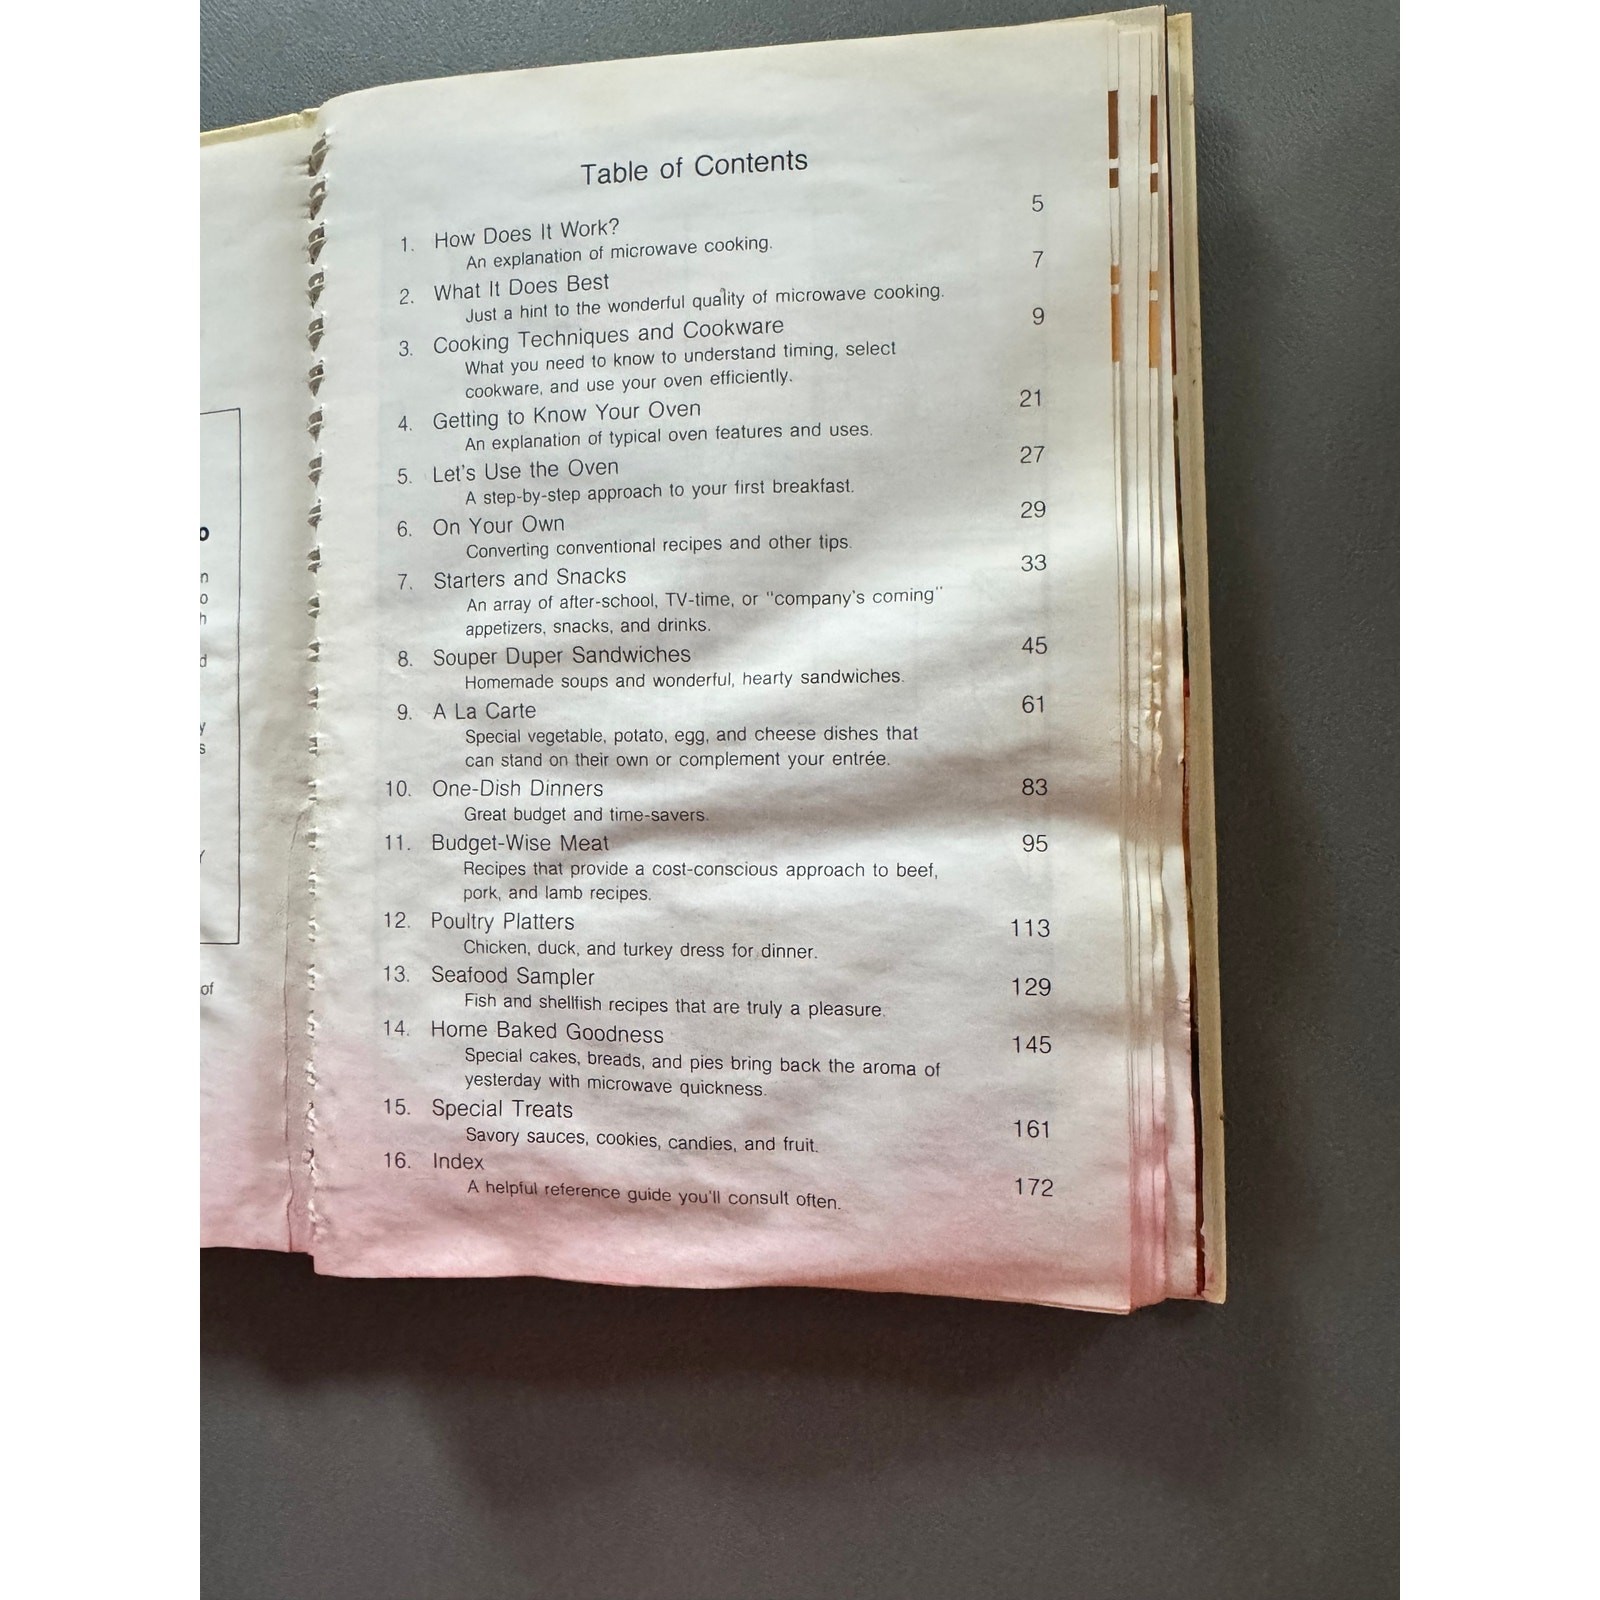 o
n
o
h
d
y
s
y
of
Table of Contents
1. How Does It Work? 5
An explanation of microwave cooking.
2. What It Does Best 7
Just a hint to the wonderful quality of microwave cooking.
3. Cooking Techniques and Cookware 9
What you need to know to understand timing, select
cookware, and use your oven efficiently.
4. Getting to Know Your Oven 21
An explanation of typical oven features and uses.
5. Let's Use the Oven 27
A step-by-step approach to your first breakfast.
6. On Your Own 29
Converting conventional recipes and other tips.
7. Starters and Snacks 33
An array of after-school, TV-time, or "company's coming"
appetizers, snacks, and drinks.
8. Souper Duper Sandwiches 45
Homemade soups and wonderful, hearty sandwiches.
9. A La Carte 61
Special vegetable, potato, egg, and cheese dishes that
can stand on their own or complement your entrée.
10. One-Dish Dinners 83
Great budget and time-savers.
11. Budget-Wise Meat 95
Recipes that provide a cost-conscious approach to beef,
pork, and lamb recipes.
12. Poultry Platters 113
Chicken, duck, and turkey dress for dinner.
13. Seafood Sampler 129
Fish and shellfish recipes that are truly a pleasure.
14. Home Baked Goodness 145
Special cakes, breads, and pies bring back the aroma of
yesterday with microwave quickness.
15. Special Treats 161
Savory sauces, cookies, candies, and fruit.
16. Index 172
A helpful reference guide you'll consult often.